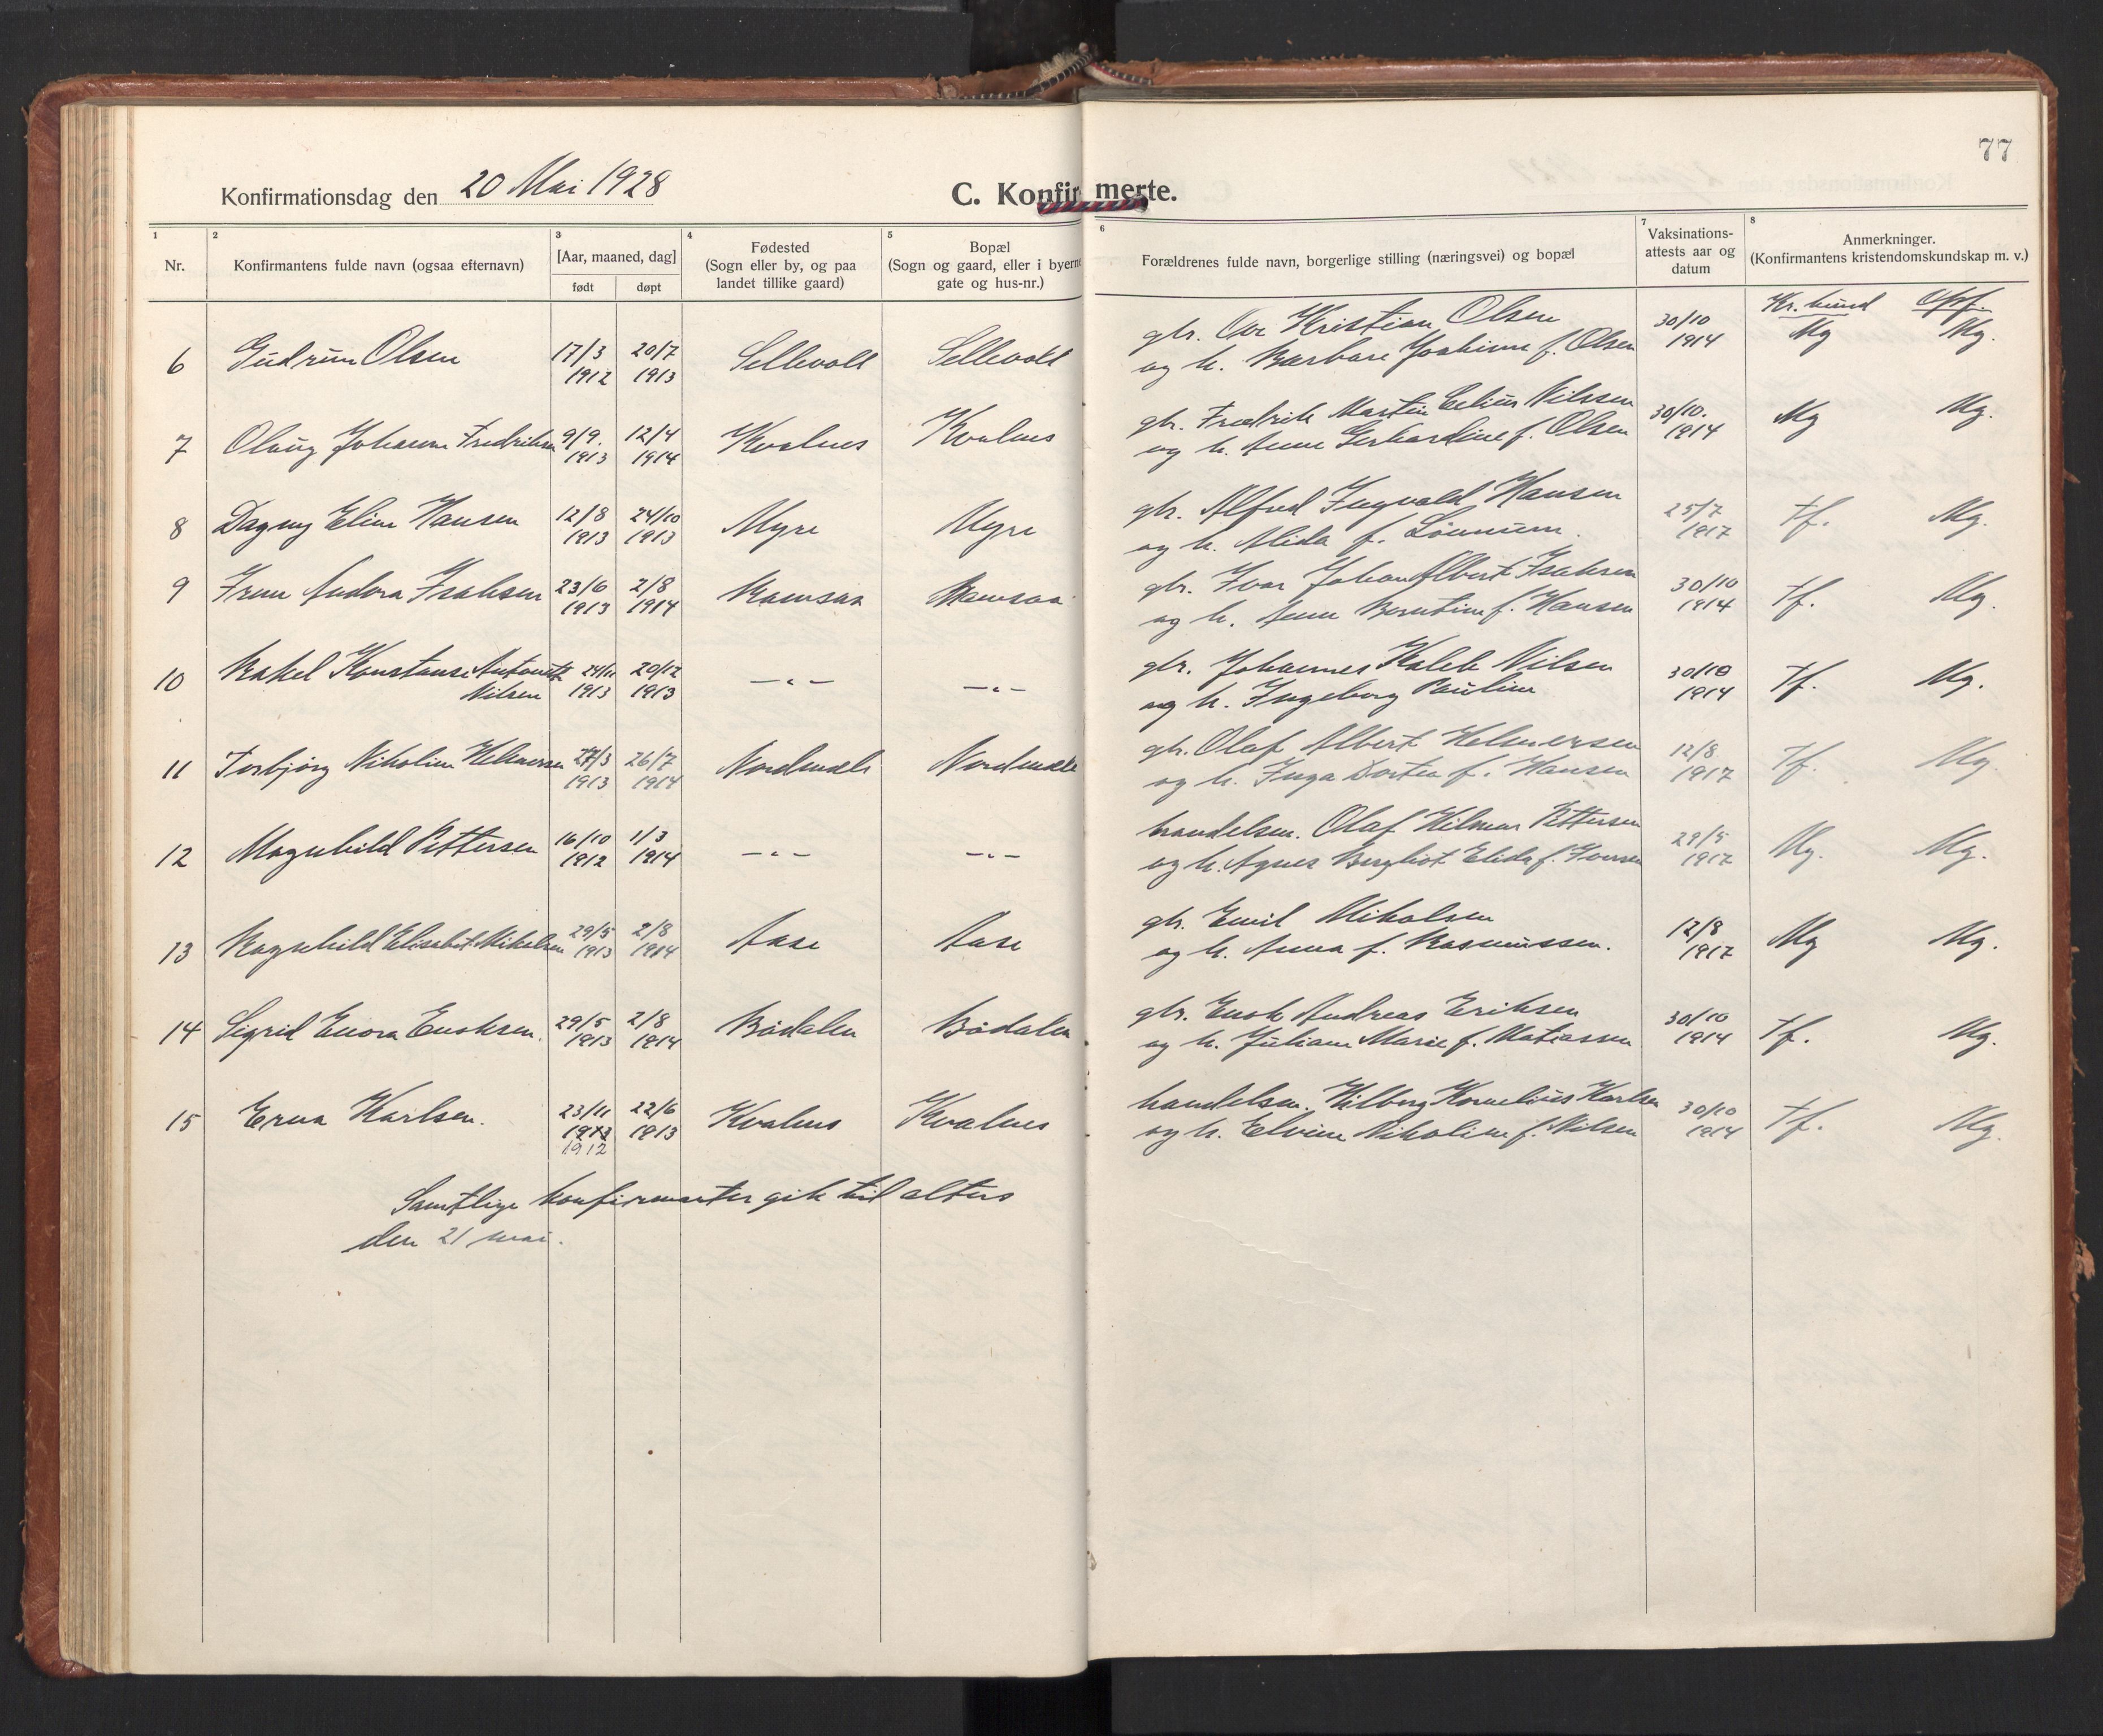 77
Konfirmationsdag den 20 Mai 1928
C. Konfirmerte.
1 2 3 4 5 6 7 8
Nr.
Konfirmantens fulde navn (ogsaa efternavn)
[Aar, maaned, dag]
født døpt
Fødested
(Sogn eller by, og paa
landet tillike gaard)
Bopæl
(Sogn og gaard, eller i byerne
gate og hus-nr.)
Forældrenes fulde navn, borgerlige stilling (næringsvei) og bopæl
Vaksinations-
attests aar og
datum
Anmerkninger.
(Konfirmantens kristendomskundskap m. v.)
Kr. kund Opf.
6 Gudrun Olsen 17/3 1912 20/7 1913 Sellevoll Sellevoll
gbr. Ove Kristian Olsen
og h. Barbara Joakime f. Olsen
30/10 1914 Mg Mg.
7 Olaug Johanne Fredriksen 9/9. 1913 12/4 1914 Kvalnes Kvalnes
gbr. Fredrik Martin Edius Nilssen
og h. Anne Gerhardine f. Olsen
30/10. 1914 Mg Mg.
8 Dagny Eline Hansen 12/8 1913 24/10 1913 Myre Myre
gbr. Alfred Ingvald Hansen
og h. Alida f.
25/7 1917 Tf. Mg.
9 Irene Andora Isaksen 23/6 1913 2/8 1914 Ramsaa Ramsaa
gbr. Ivar Johan Albert Isaksen
og h. Anne Berntine f. Hansen
30/10 1914 Tf. Mg.
10 Rakel Konstanse Antonette
Nilsen 24/11 1913 20/12 1913 —"— —"—
gbr. Johannes Kaleb Nilsen
og h. Ingeborg Pauline
30/10 1914 Tf. Mg.
11 Torbjørg Nikoline Helmersen 27/3 1913 26/7 1914 Nordmæle Nordmæle
gbr. Olaf Albert Helmersen
og h. Inga Dortea f. Hansen
12/8 1917 Tf. Mg.
12 Magnhild Pettersen 16/10 1912 1/3 1914 —"— —"—
handelsm. Olaf Hilmar Pettersen
og h. Agnes Bergliot Elida f. Iversen
29/5 1917 Mg. Mg.
13 Ragnhild Elisabet Mikalsen 29/5 1913 2/8 1914 Aase Aase
gbr. Emil Mikalsen
og h. Anna f. Rasmussen.
12/8 1917 Mg Mg.
14 Sigrid Enora Enoksen. 29/5 1913 2/8 1914 Bødalen Bødalen
gbr. Enok Andreas Eriksen
og h. Juliane Marie f. Matiassen
30/10 1914 Tf. Mg.
15 Erna Karlsen. 23/11 1913 1912 22/6 1913 Kvalnes Kvalnes
handelsm. Hilberg Kornelius Karlsen
og h. Elvine Nikoline f. Nilsen
30/10 1914 Tf. Mg.
Samtlige konfirmanter gik til alters
den 21 mai.